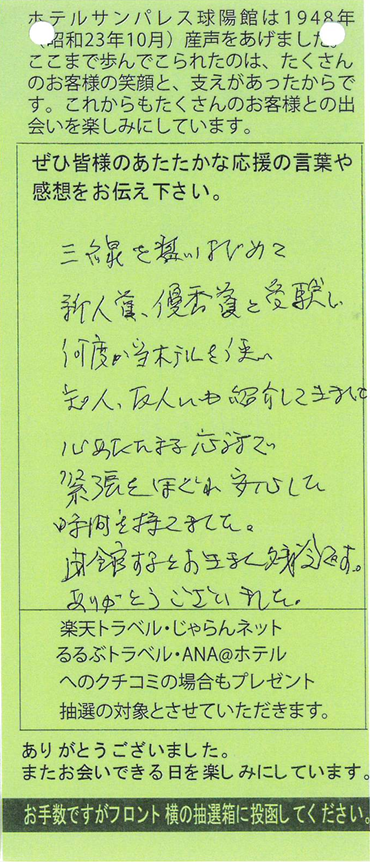 ホテルサンパレス球陽館は1948年
（昭和23年10月）産声をあげました。
ここまで歩んでこられたのは、たくさん
のお客様の笑顔と、支えがあったからで
す。これからもたくさんのお客様との出
会いを楽しみにしています。
ぜひ皆様のあたたかな応援の言葉や
感想をお伝え下さい。
三線を習いはじめて
新人賞、優秀賞と受験し
何度か当ホテルを使い
知人、友人にも紹介して
心あたたまる応対で
緊張をほぐれ安心した
時間を持てました。
閉館するとお
ありがとうございました。
楽天トラベル・じゃらんネット
るるぶトラベル・ANA@ホテル
へのクチコミの場合もプレゼント
抽選の対象とさせていただきます。
ありがとうございました。
またお会いできる日を楽しみにしています。
お手数ですがフロント横の抽選箱に投函してください。